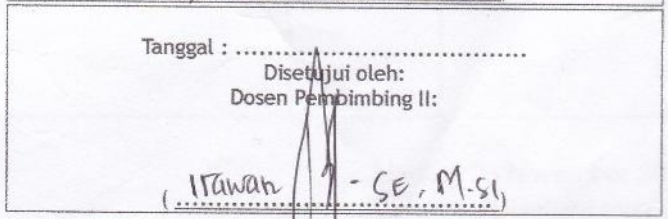 Tanggal : ................................................
Disetujui oleh:
Dosen Pembimbing II:
( Irawan - SE, M.Si )